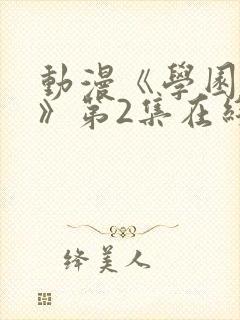 動漫《學園
》第2集在
绛美人